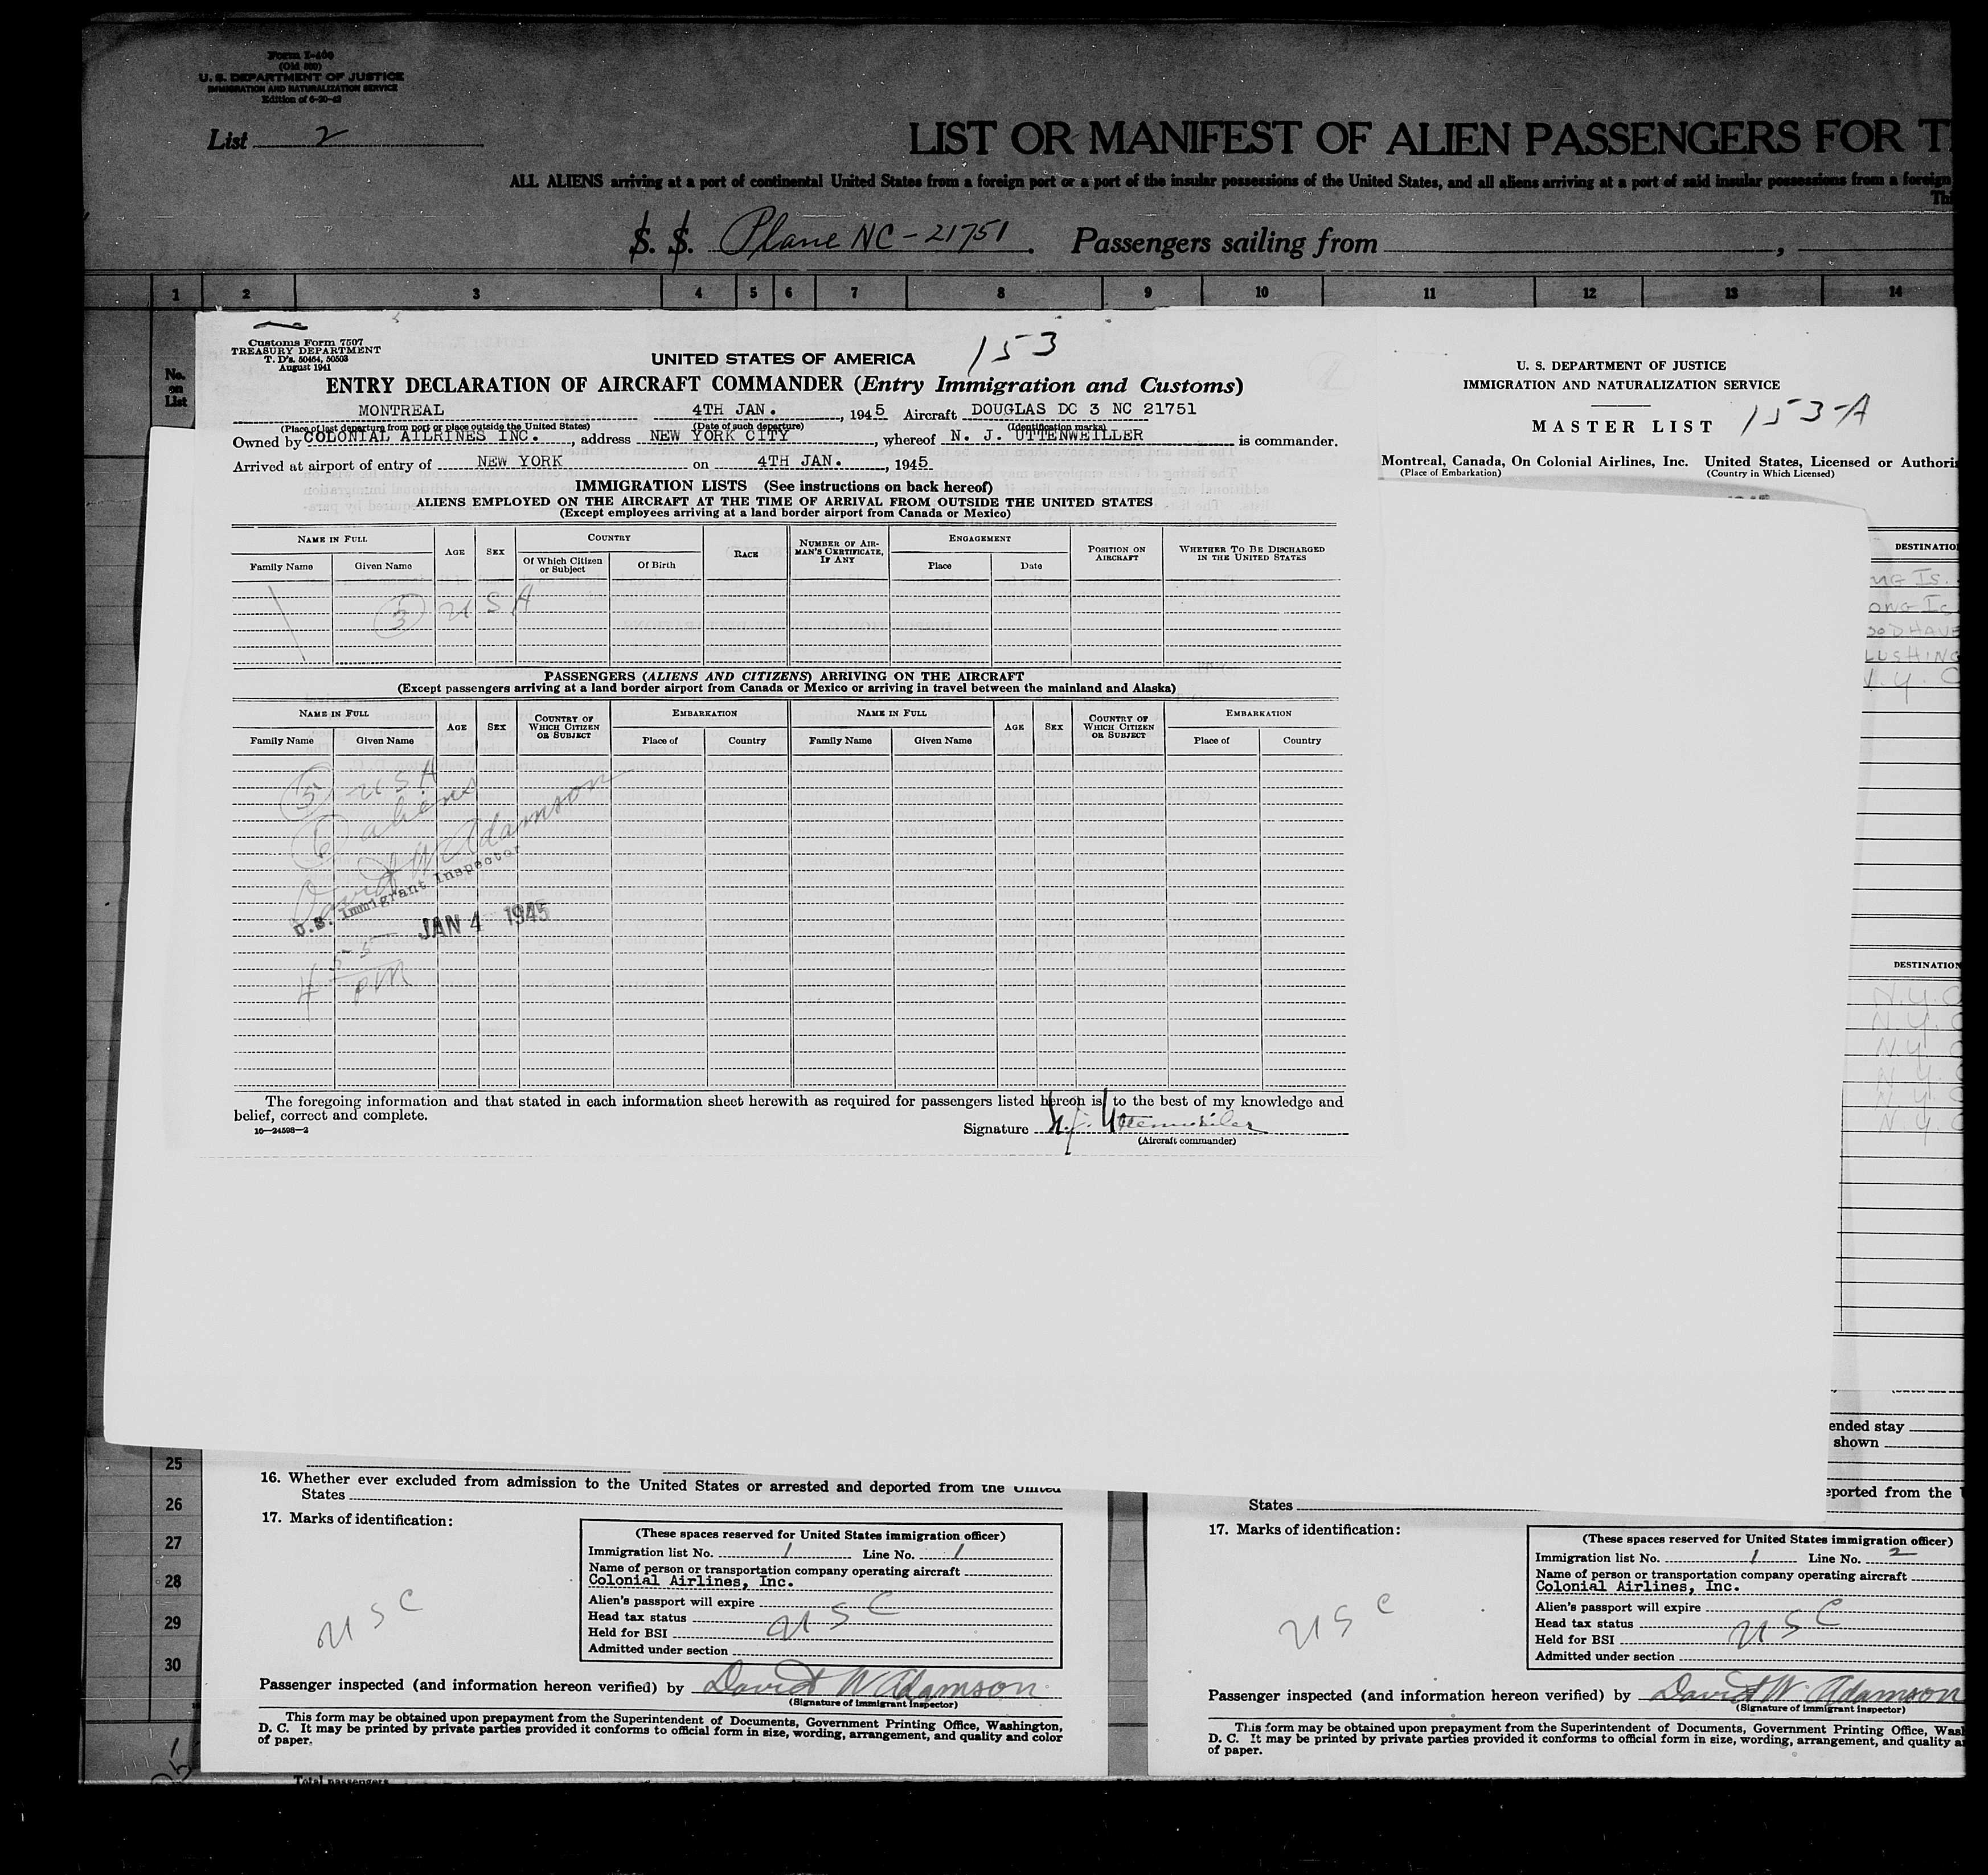 Form I-400
(Old 500)
U. S. DEPARTMENT OF JUSTICE
IMMIGRATION AND NATURALIZATION SERVICE
Edition of 6-20-43
List 2
LIST OR MANIFEST OF ALIEN PASSENGERS FOR T
ALL ALIENS arriving at a port of continental United States from a foreign port or a port of the insular possessions of the United States, and all aliens arriving at a port of said insular possessions from a foreign
Thi
S. S. Plane NC-21751. Passengers sailing from ,
1 2 3 4 5 6 7 8 9 10 11 12 13 14
No. on List
Customs Form 7507
TREASURY DEPARTMENT
T. D's. 50464, 50503
August 1941
UNITED STATES OF AMERICA
153
ENTRY DECLARATION OF AIRCRAFT COMMANDER (Entry Immigration and Customs)
MONTREAL 4TH JAN., 1945 Aircraft DOUGLAS DC 3 NC 21751
(Place of last departure from port or place outside the United States) (Date of such departure) (Identification marks)
Owned by COLONIAL AILRINES INC., address NEW YORK CITY, whereof N. J. UTTENWEILLER is commander.
Arrived at airport of entry of NEW YORK on 4TH JAN., 1945
IMMIGRATION LISTS (See instructions on back hereof)
ALIENS EMPLOYED ON THE AIRCRAFT AT THE TIME OF ARRIVAL FROM OUTSIDE THE UNITED STATES
(Except employees arriving at a land border airport from Canada or Mexico)
NAME IN FULL AGE SEX COUNTRY RACE NUMBER OF AIRMAN'S CERTIFICATE, IF ANY ENGAGEMENT POSITION ON AIRCRAFT WHETHER TO BE DISCHARGED IN THE UNITED STATES
Family Name Given Name Of Which Citizen or Subject Of Birth Place Date
3 USA
PASSENGERS (ALIENS AND CITIZENS) ARRIVING ON THE AIRCRAFT
(Except passengers arriving at a land border airport from Canada or Mexico or arriving in travel between the mainland and Alaska)
NAME IN FULL AGE SEX COUNTRY OF WHICH CITIZEN OR SUBJECT EMBARKATION NAME IN FULL AGE SEX COUNTRY OF WHICH CITIZEN OR SUBJECT EMBARKATION
Family Name Given Name Place of Country Family Name Given Name Place of Country
5 USA
6 aliens
David W Adamson
U.S. Immigrant Inspector
JAN 4 1945
4 55 PM
The foregoing information and that stated in each information sheet herewith as required for passengers listed hereon is to the best of my knowledge and
belief, correct and complete.
16—24598—2
Signature N. J. Uttenweiler
(Aircraft commander)
U. S. DEPARTMENT OF JUSTICE
IMMIGRATION AND NATURALIZATION SERVICE
MASTER LIST 153-A
Montreal, Canada, On Colonial Airlines, Inc. United States, Licensed or Authori
(Place of Embarkation) (Country in Which Licensed)
DESTINATIO
NG IS.
ONG IS
OODHAVE
LUSHING
N.Y. C
DESTINATION
N.Y.C
N.Y.C
N.Y. C
N.Y. C
N.Y. C
N.Y. C
ended stay
shown
eported from the U
25
26
27
28
29
30
16. Whether ever excluded from admission to the United States or arrested and deported from the United
States
17. Marks of identification:
USC
(These spaces reserved for United States immigration officer)
Immigration list No. 1 Line No. 1
Name of person or transportation company operating aircraft
Colonial Airlines, Inc.
Alien's passport will expire
Head tax status USC
Held for BSI
Admitted under section
Passenger inspected (and information hereon verified) by David W Adamson
(Signature of immigrant inspector)
This form may be obtained upon prepayment from the Superintendent of Documents, Government Printing Office, Washington,
D. C. It may be printed by private parties provided it conforms to official form in size, wording, arrangement, and quality and color
of paper.
Total passengers
States
17. Marks of identification:
USC
(These spaces reserved for United States immigration officer)
Immigration list No. 1 Line No. 2
Name of person or transportation company operating aircraft
Colonial Airlines, Inc.
Alien's passport will expire
Head tax status USC
Held for BSI
Admitted under section
Passenger inspected (and information hereon verified) by David W. Adamson
(Signature of immigrant inspector)
This form may be obtained upon prepayment from the Superintendent of Documents, Government Printing Office, Was
D. C. It may be printed by private parties provided it conforms to official form in size, wording, arrangement, and quality a
of paper.